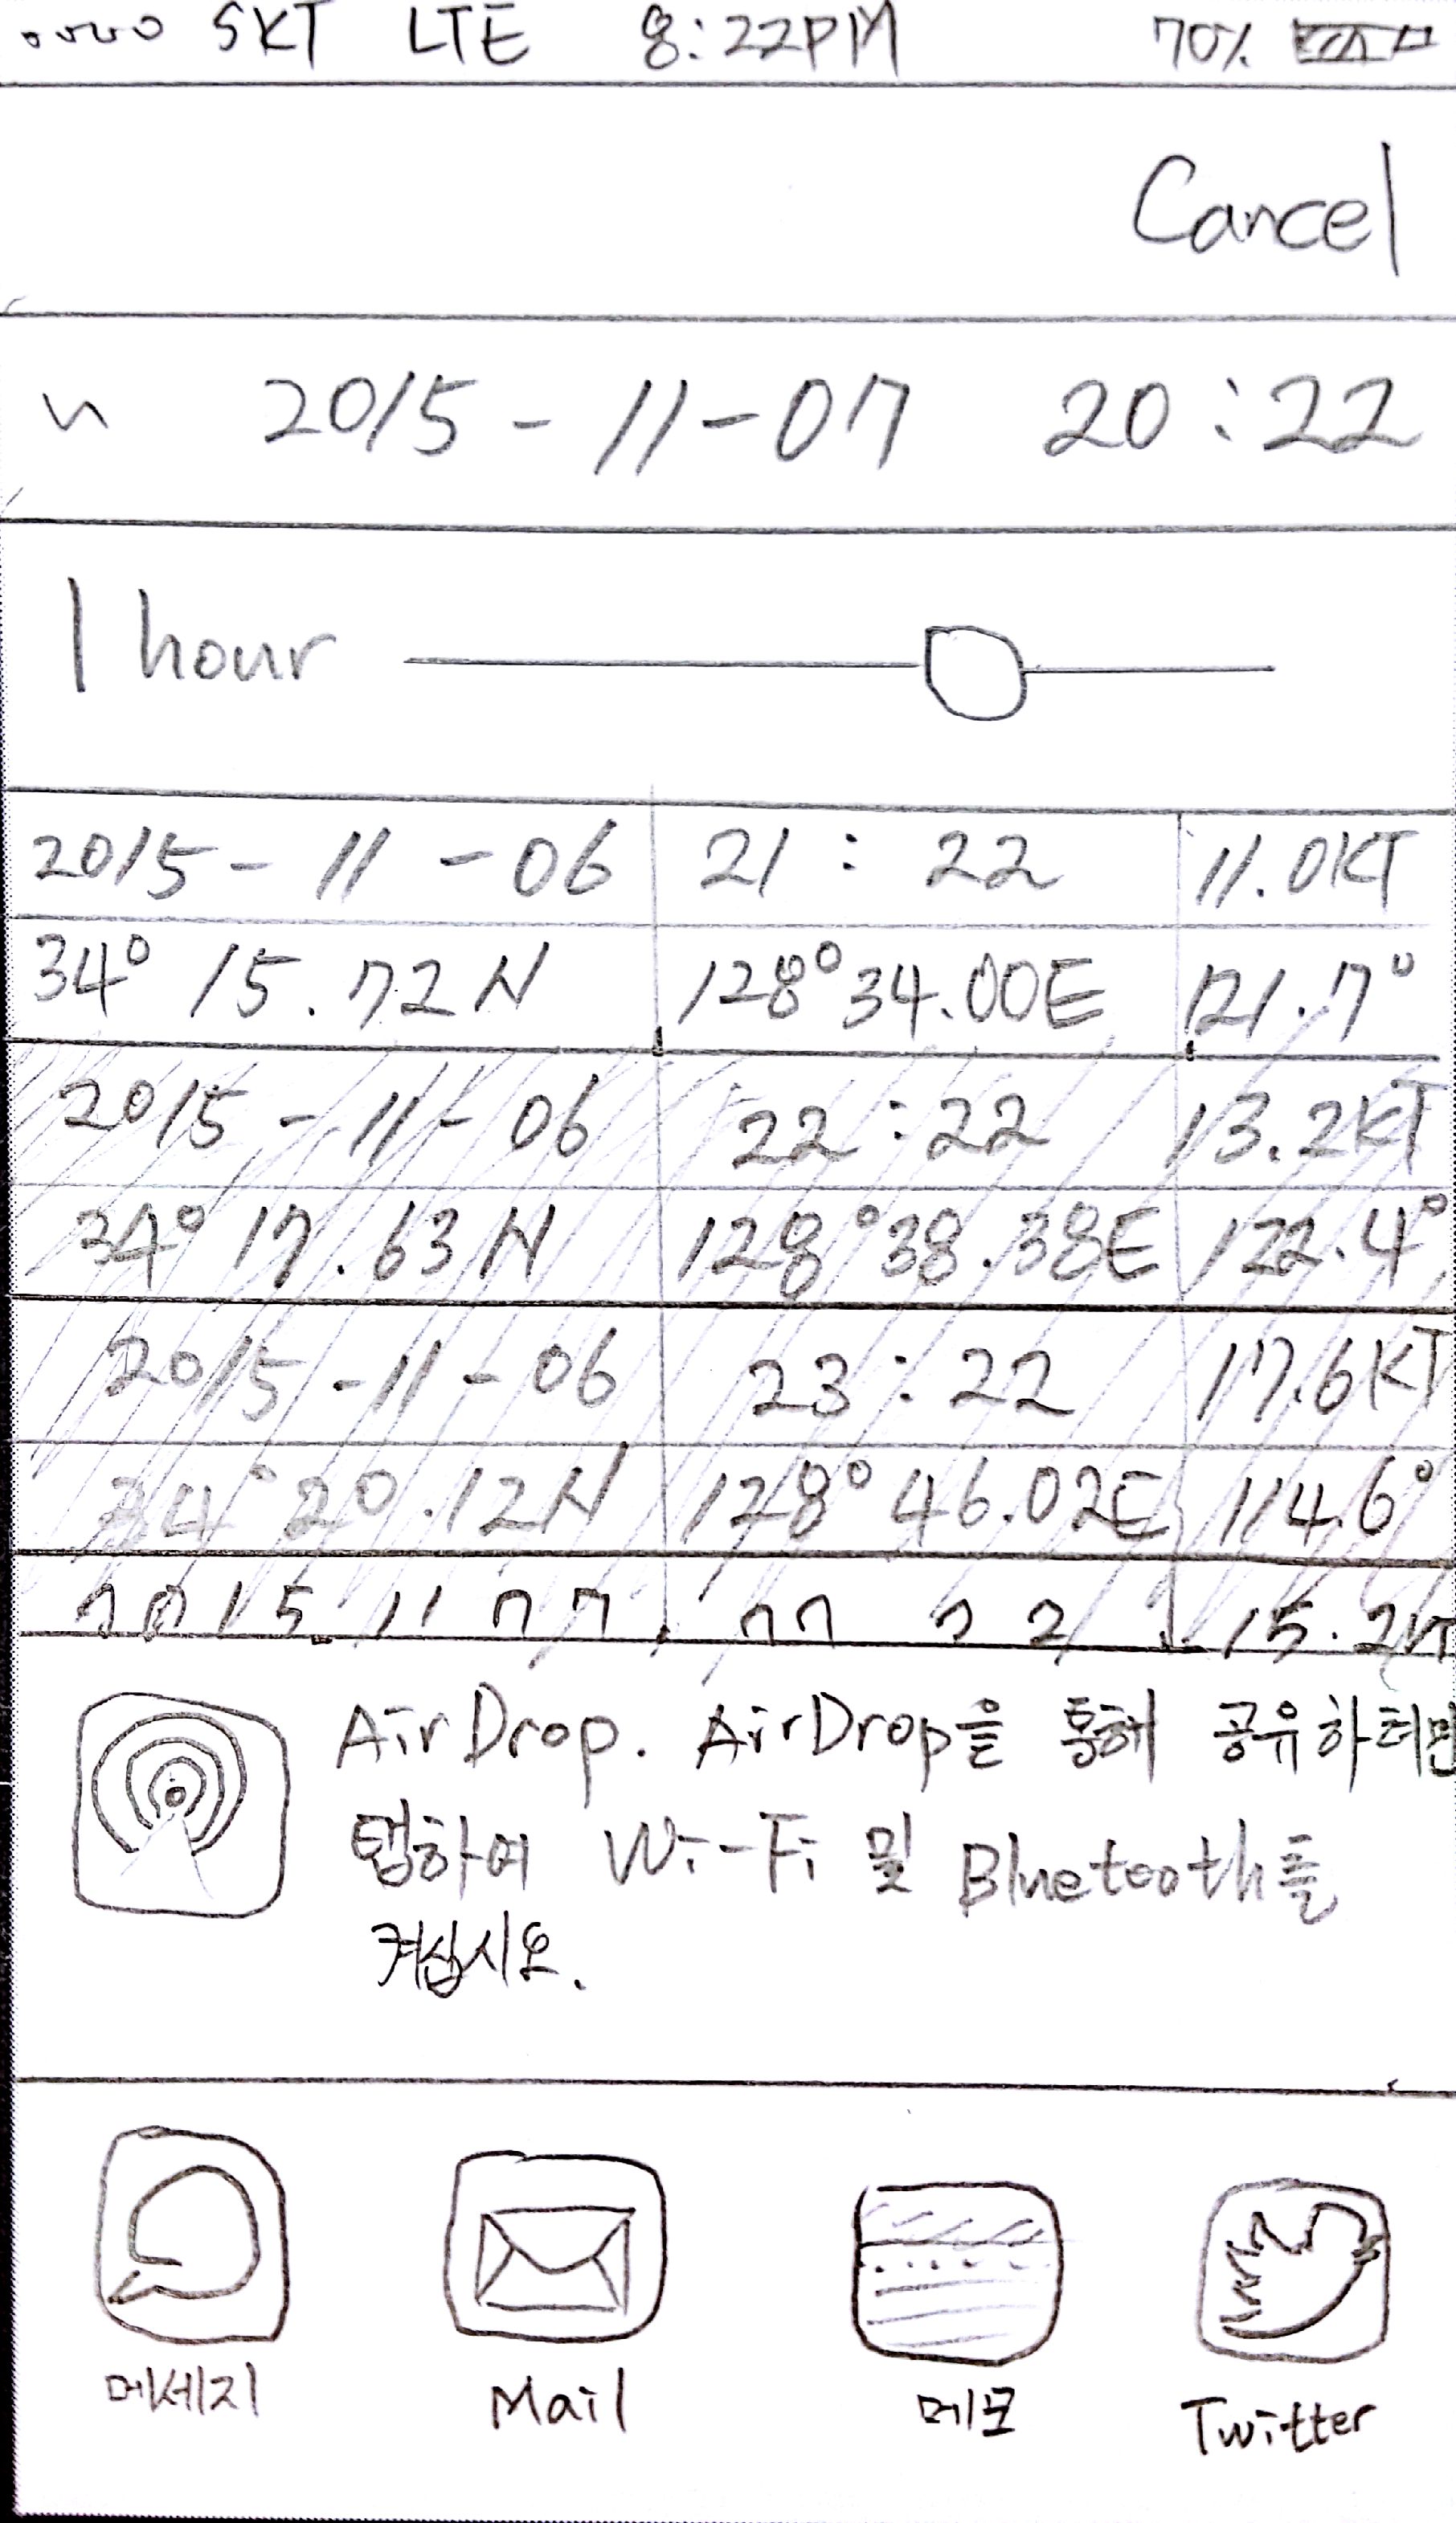 SKT LTE 8:22PM 70%
Cancel
~ 2015-11-07 20:22
1 hour
2015-11-06 21:22 11.0KT
34° 15.72N 128°34.00E 121.7°
2015-11-06 22:22 13.2KT
34° 17.63N 128°38.38E 122.4°
2015-11-06 23:22 17.6KT
34° 20.12N 128°46.02E 114.6°
AirDrop. AirDrop을 통해 공유하려면
탭하여 Wi-Fi 및 Bluetooth를
켜십시오.
메세지 Mail 메모 Twitter